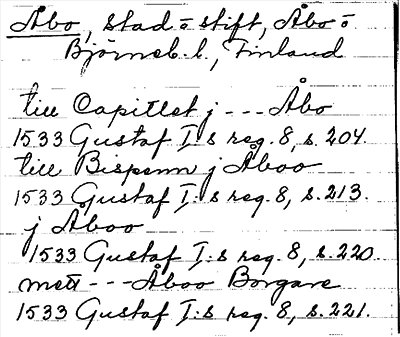 Åbo, stad o stift, Åbo o
Björneb. l., Finland
till Capitlet j --- Åbo
1533 Gustaf I:s reg. 8, s. 204.
till Bispenn j Åboo
1533 Gustaf I:s reg. 8, s. 213.
j Åboo
1533 Gustaf I:s reg. 8, s. 220.
mett --- Åboo Borgare
1533 Gustaf I:s reg. 8, s. 221.